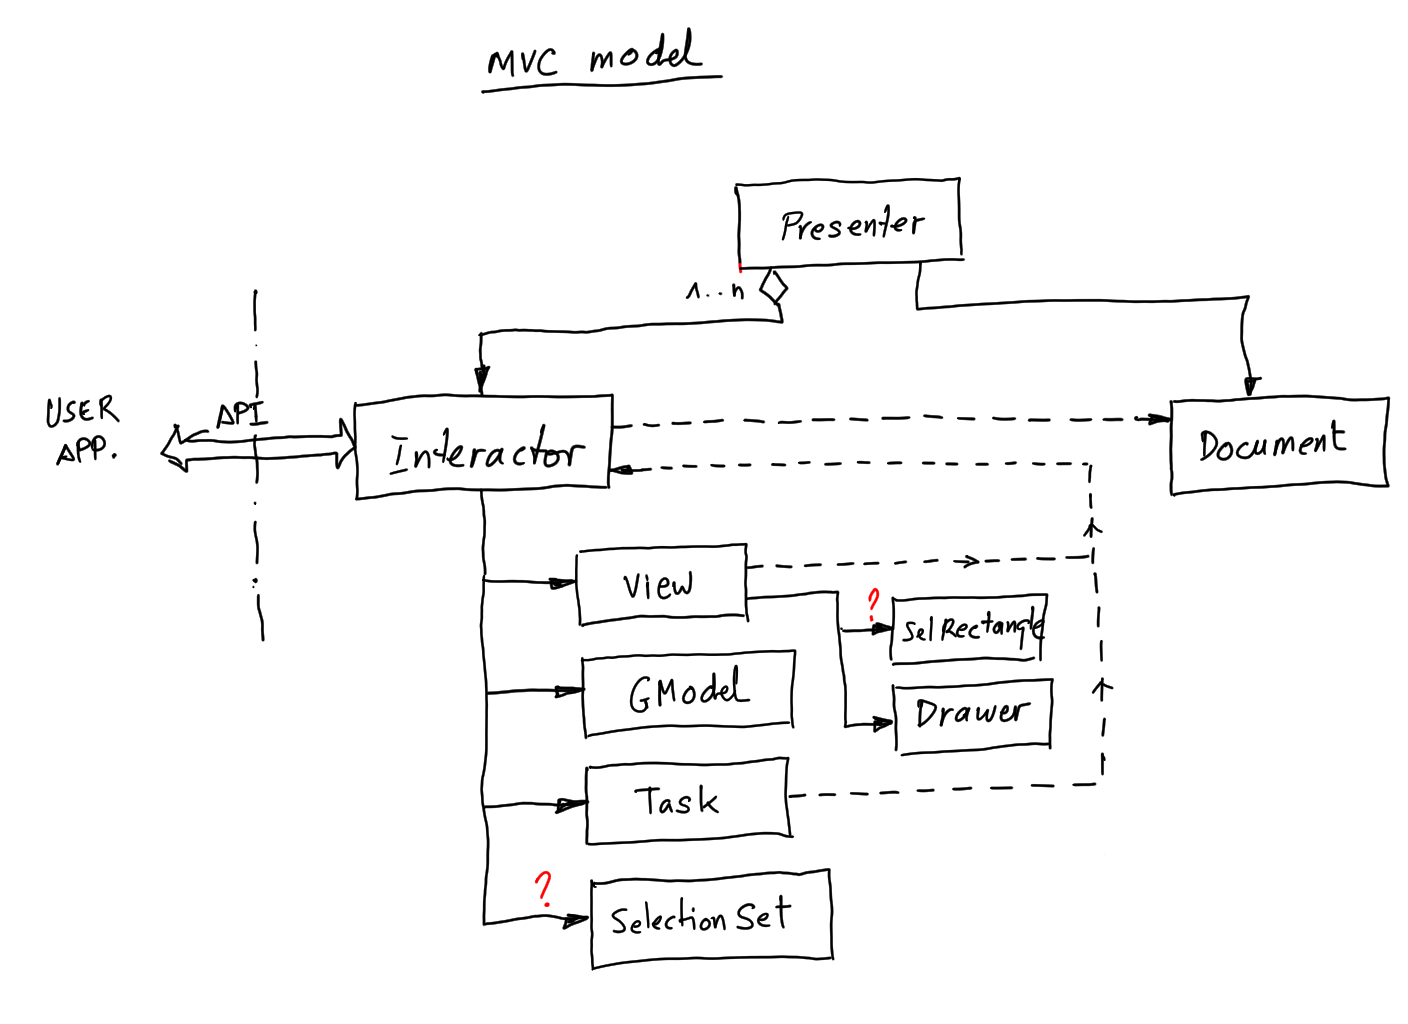 MVC model
Presenter
1..n
USER
APP.
API
Interactor
Document
View
?
Sel Rectangle
GModel
Drawer
Task
?
Selection Set